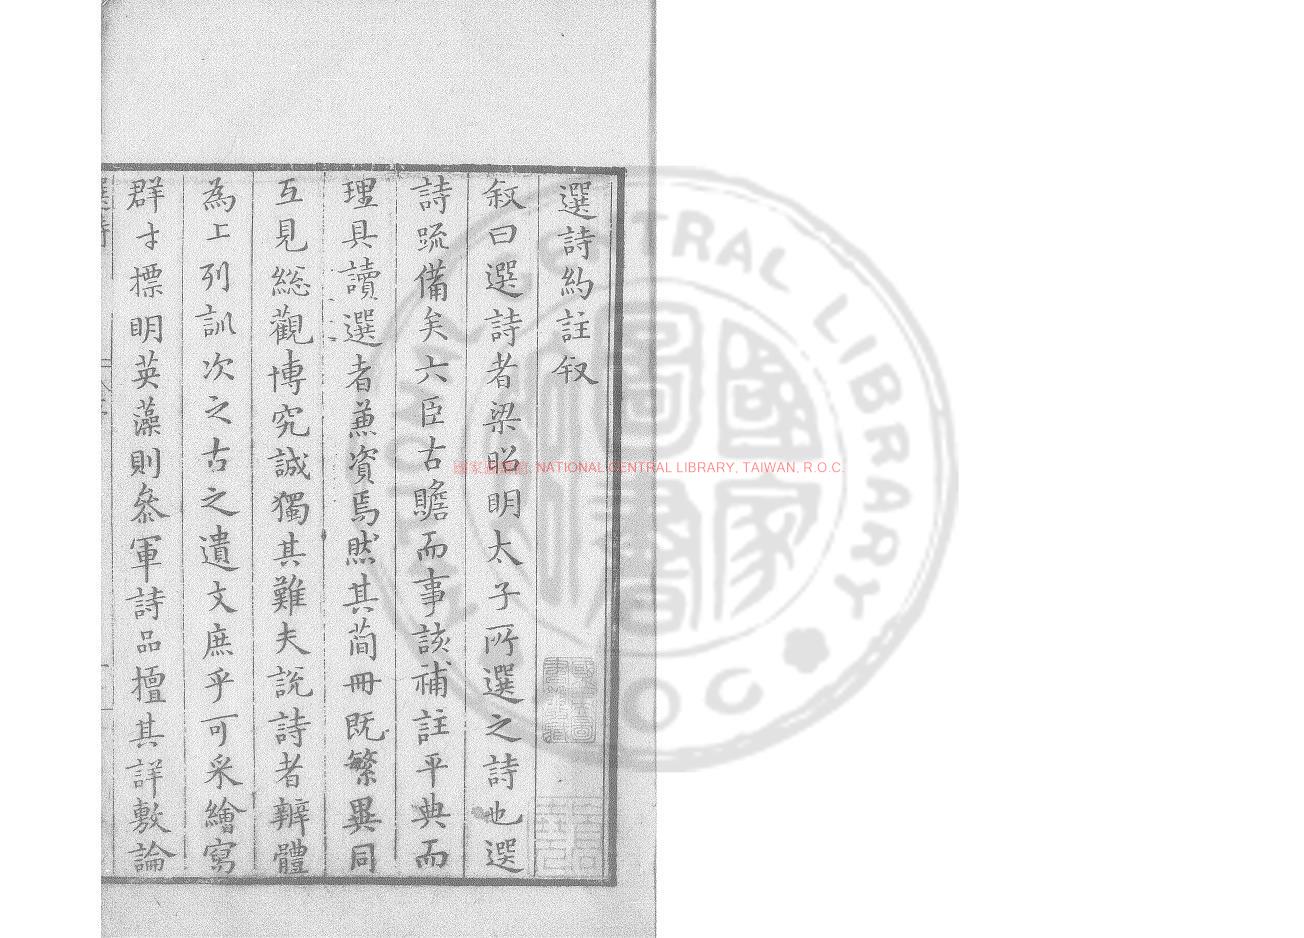 選詩約註叙
叙曰選詩者梁昭明太子所選之詩也選
詩䟽備矣六臣古贍而事該補註平典而
理具讀選者兼資焉然其蕳冊既繁異同
互見総觀博究誠獨其難夫說詩者辨體
為上列訓次之古之遺文庶乎可采繪寫
群才標明英藻則叅軍詩品擅其詳敷論
選詩
國家圖書館, NATIONAL CENTRAL LIBRARY, TAIWAN, R.O.C.
CENTRAL LIBRARY
R.O.C
國家圖書